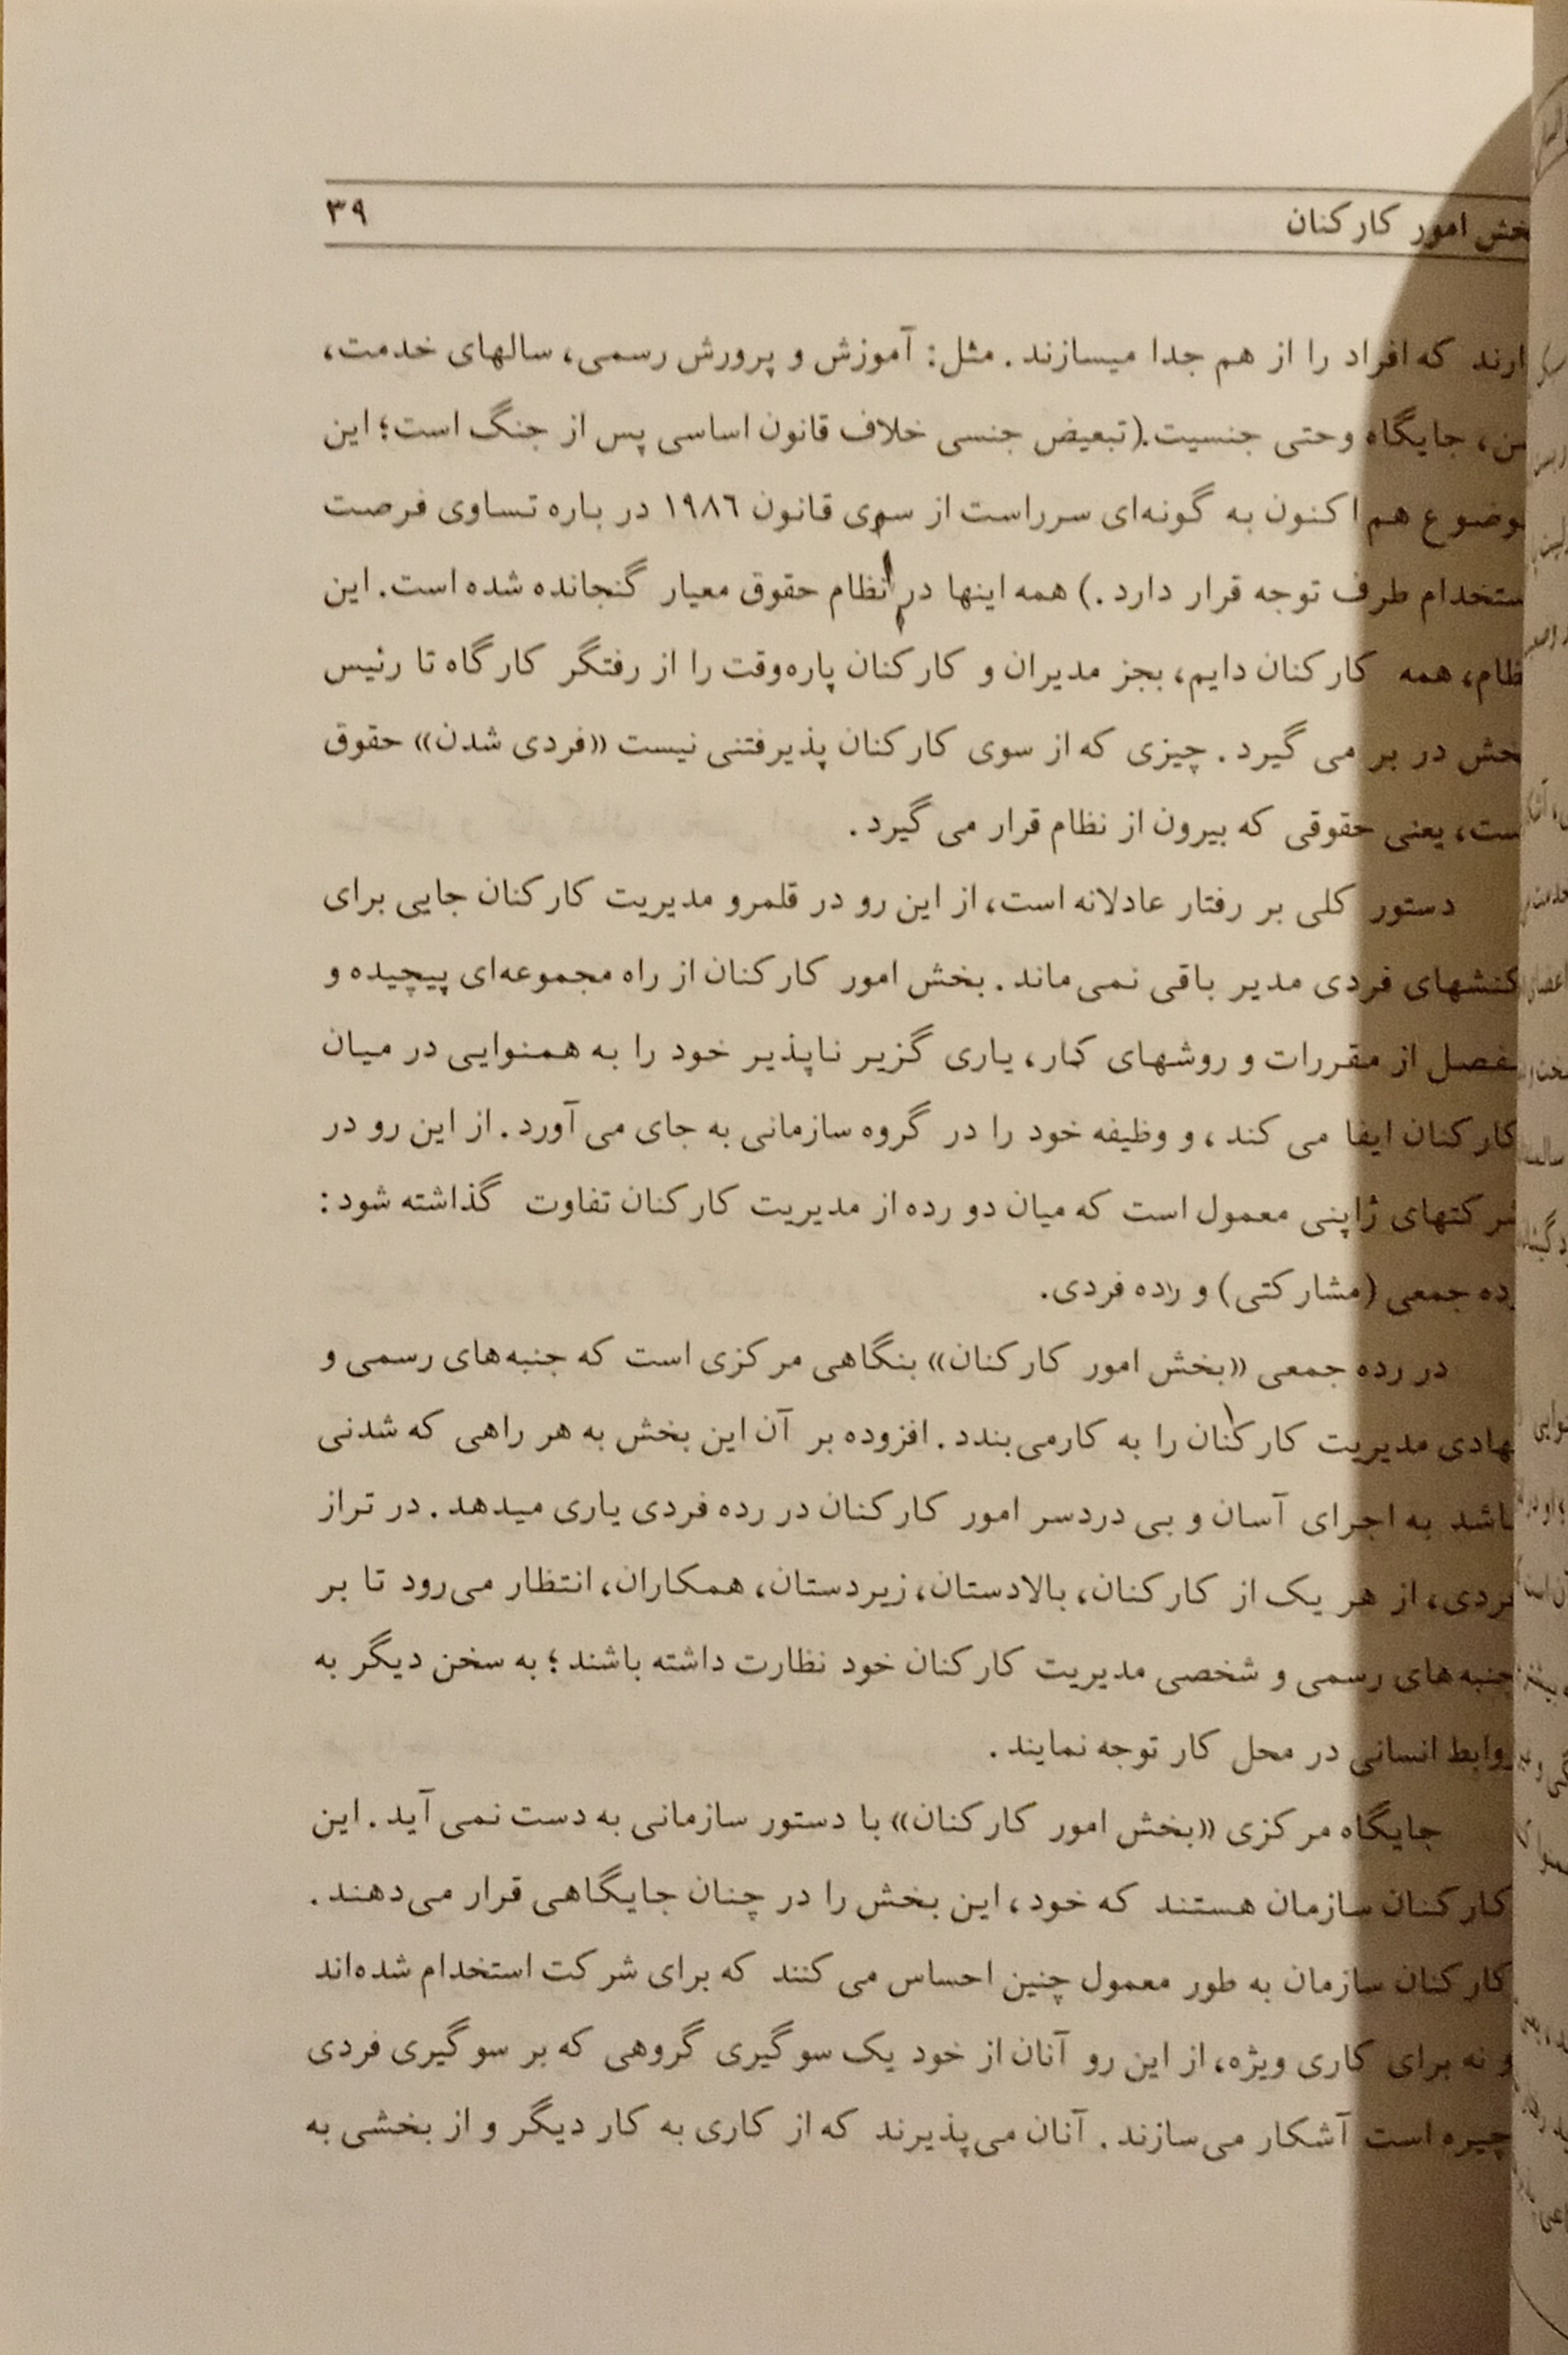 بخش امور کارکنان ۳۹
دارند که افراد را از هم جدا میسازند. مثل: آموزش و پرورش رسمی، سالهای خدمت،
سن، جایگاه وحتی جنسیت.(تبعیض جنسی خلاف قانون اساسی پس از جنگ است؛ این
موضوع هم اکنون به گونه‌ای سرراست از سوی قانون ۱۹۸۶ در باره تساوی فرصت
استخدام طرف توجه قرار دارد.) همه اینها در نظام حقوق معیار گنجانده شده است. این
نظام، همه کارکنان دایم، بجز مدیران و کارکنان پاره‌وقت را از رفتگر کارگاه تا رئیس
بخش در بر می گیرد. چیزی که از سوی کارکنان پذیرفتنی نیست «فردی شدن» حقوق
است، یعنی حقوقی که بیرون از نظام قرار می گیرد.
دستور کلی بر رفتار عادلانه است، از این رو در قلمرو مدیریت کارکنان جایی برای
کنشهای فردی مدیر باقی نمی‌ماند. بخش امور کارکنان از راه مجموعه‌ای پیچیده و
مفصل از مقررات و روشهای کار، یاری گزیر ناپذیر خود را به همنوایی در میان
کارکنان ایفا می کند، و وظیفه خود را در گروه سازمانی به جای می آورد. از این رو در
شرکتهای ژاپنی معمول است که میان دو رده از مدیریت کارکنان تفاوت گذاشته شود:
رده جمعی (مشارکتی) و رده فردی.
در رده جمعی «بخش امور کارکنان» بنگاهی مرکزی است که جنبه‌های رسمی و
نهادی مدیریت کارکنان را به کارمی‌بندد. افزوده بر آن این بخش به هر راهی که شدنی
باشد به اجرای آسان و بی دردسر امور کارکنان در رده فردی یاری میدهد. در تراز
فردی، از هر یک از کارکنان، بالادستان، زیردستان، همکاران، انتظار می‌رود تا بر
جنبه‌های رسمی و شخصی مدیریت کارکنان خود نظارت داشته باشند؛ به سخن دیگر به
روابط انسانی در محل کار توجه نمایند.
جایگاه مرکزی «بخش امور کارکنان» با دستور سازمانی به دست نمی آید. این
کارکنان سازمان هستند که خود، این بخش را در چنان جایگاهی قرار می‌دهند.
کارکنان سازمان به طور معمول چنین احساس می کنند که برای شرکت استخدام شده‌اند
و نه برای کاری ویژه، از این رو آنان از خود یک سوگیری گروهی که بر سوگیری فردی
چیره است آشکار می‌سازند. آنان می‌پذیرند که از کاری به کار دیگر و از بخشی به